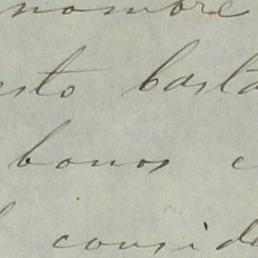 nombre
esto basta
bonos c
conside